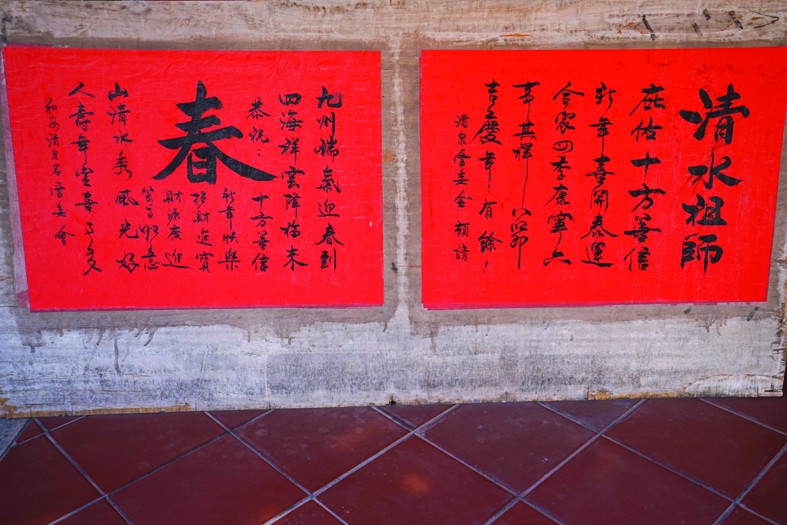 清水祖師
庇佑十方善信
新年喜開泰運
合家四季康寧六
事其祥八節
吉慶年々有餘
清泉 委會
九州瑞氣迎春到
四海祥雲降福來
恭祝：十方善信
新年快樂
招財進寶
財源廣進
萬事如意
春
山清水秀風光好
人壽年豐喜事多
清泉岩管委會